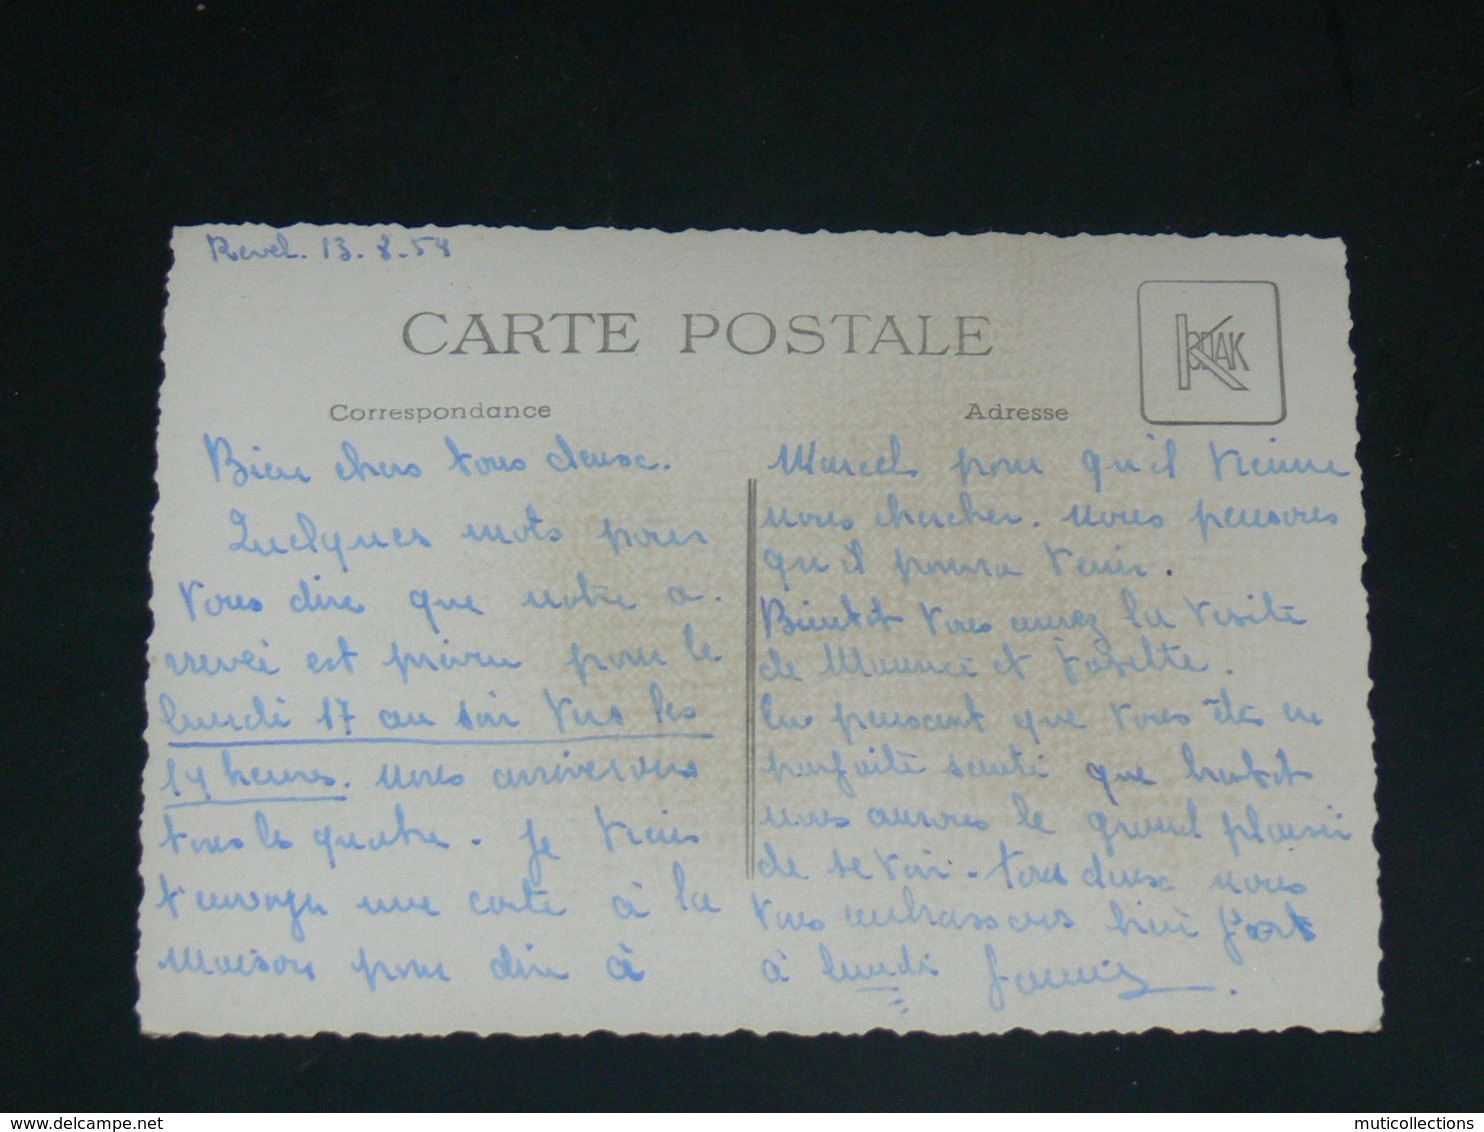 Revel. 13.8.59
CARTE POSTALE
KBETAK
Correspondance
Adresse
Bien chers tous deux.
Quelques mots pour
vous dire que notre a-
rrivée est prévu pour le
lundi 17 au soir vers les
19 heures. nous arriverons
tous les quatre. Je viens
d'envoyer une carte à la
maison pour dire à
Marcel pour qu'il vienne
nous chercher. nous pensons
qu'il pourra venir.
Bientôt vous aurez la visite
de Maurice et Josette.
En pensant que vous êtes en
parfaite santé que bientôt
nous aurons le grand plaisir
de se voir. tous deux nous
vous embrassons bien fort
à lundi
muticollections